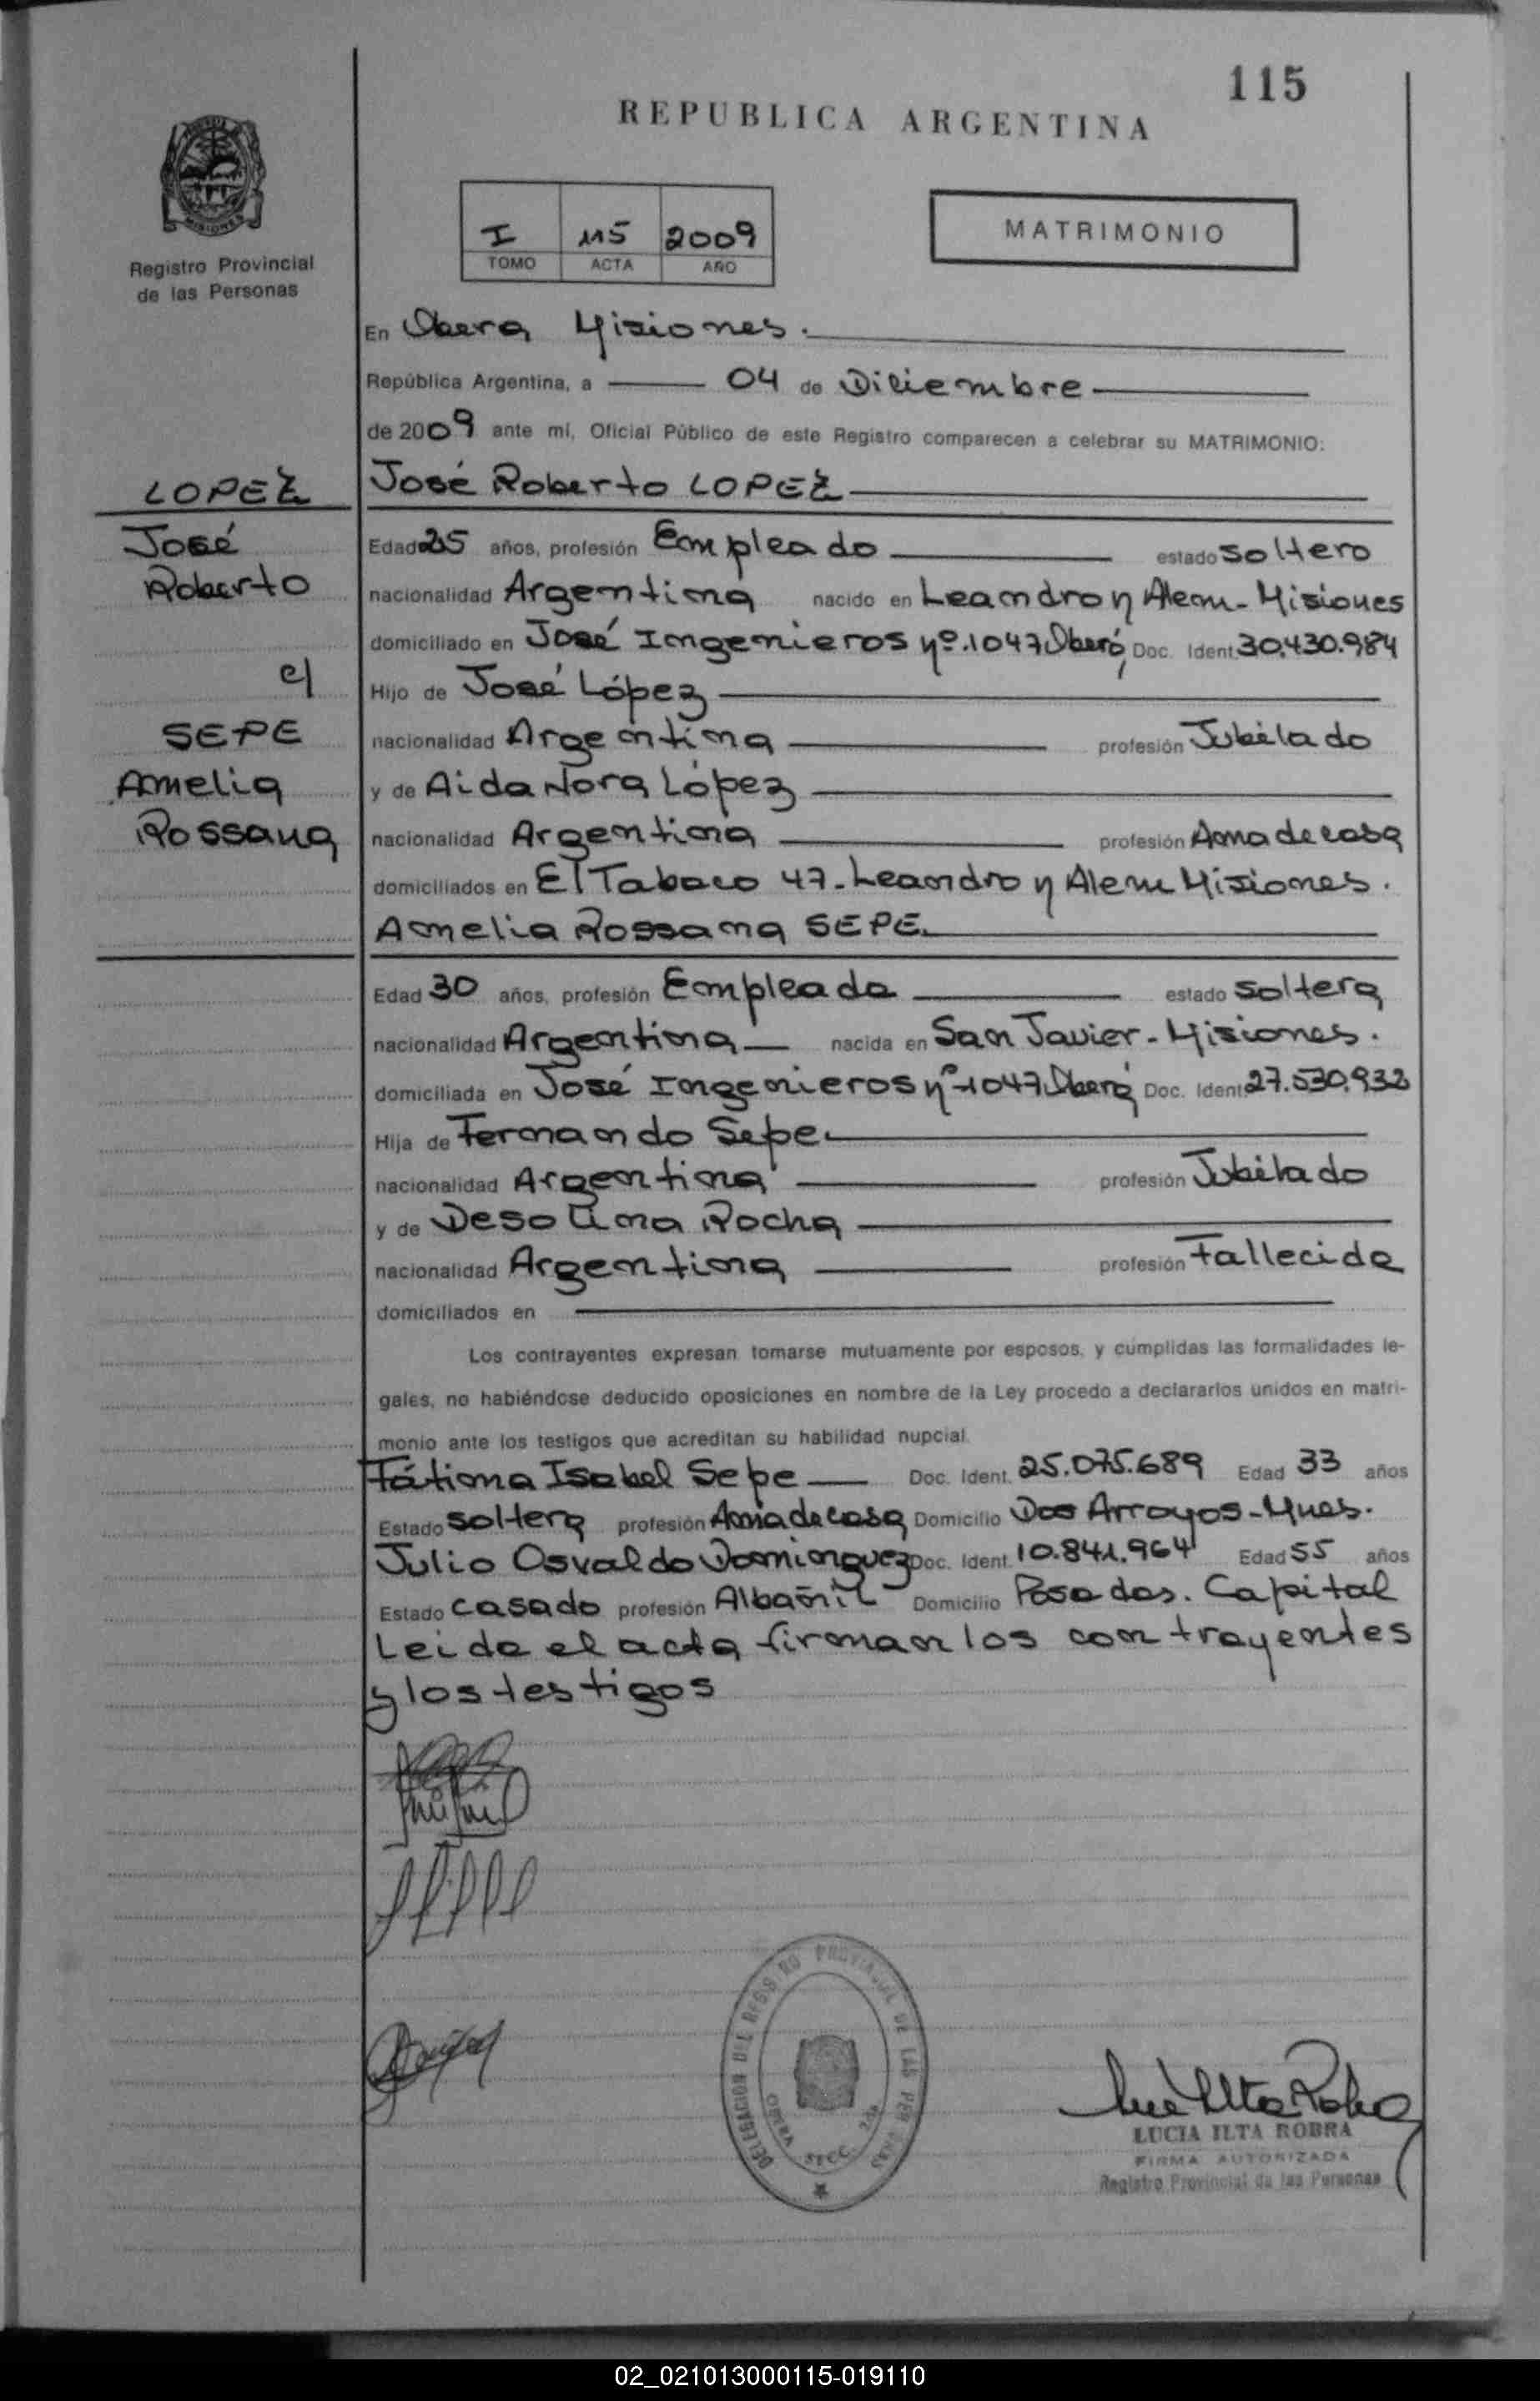 115
REPUBLICA ARGENTINA
Registro Provincial
de las Personas
I 115 2009
TOMO ACTA AÑO
MATRIMONIO
En Obera Misiones.
República Argentina, a 04 de Diciembre
de 2009 ante mí, Oficial Público de este Registro comparecen a celebrar su MATRIMONIO:
LOPEZ
José
Roberto
c/
SEPE
Amelia
Rossana
José Roberto LOPEZ
Edad 25 años, profesión Empleado estado soltero
nacionalidad Argentina nacido en Leandro N Alem - Misiones
domiciliado en José Ingenieros Nº. 1047 Oberá, Doc. Ident. 30.430.984
Hijo de José López
nacionalidad Argentina profesión Jubilado
y de Aida Nora López
nacionalidad Argentina profesión Ama de casa
domiciliados en El Tabaco 47 - Leandro N Alem Misiones.
Amelia Rossana SEPE.
Edad 30 años, profesión Empleada estado soltera
nacionalidad Argentina nacida en San Javier - Misiones.
domiciliada en José Ingenieros Nº 1047 Oberá Doc. Ident. 27.530.932
Hija de Fernando Sepe.
nacionalidad Argentina profesión Jubilado
y de Desolina Rocha
nacionalidad Argentina profesión Fallecida
domiciliados en
Los contrayentes expresan tomarse mutuamente por esposos, y cumplidas las formalidades le-
gales, no habiéndose deducido oposiciones en nombre de la Ley procedo a declararlos unidos en matri-
monio ante los testigos que acreditan su habilidad nupcial.
Fátima Isabel Sepe Doc. Ident. 25.075.689 Edad 33 años
Estado soltera profesión Ama de casa Domicilio Dos Arroyos - Mnes.
Julio Osvaldo Dominguez Doc. Ident. 10.841.964 Edad 55 años
Estado casado profesión Albañil Domicilio Posadas. Capital
Leida el acta firman los contrayentes
y los testigos
DELEGACION DEL REGISTRO PROVINCIAL DE LAS PERSONAS
OBERA SECC. 2da
LUCIA ILTA ROBRA
FIRMA AUTORIZADA
Registro Provincial de las Personas
02_021013000115-019110